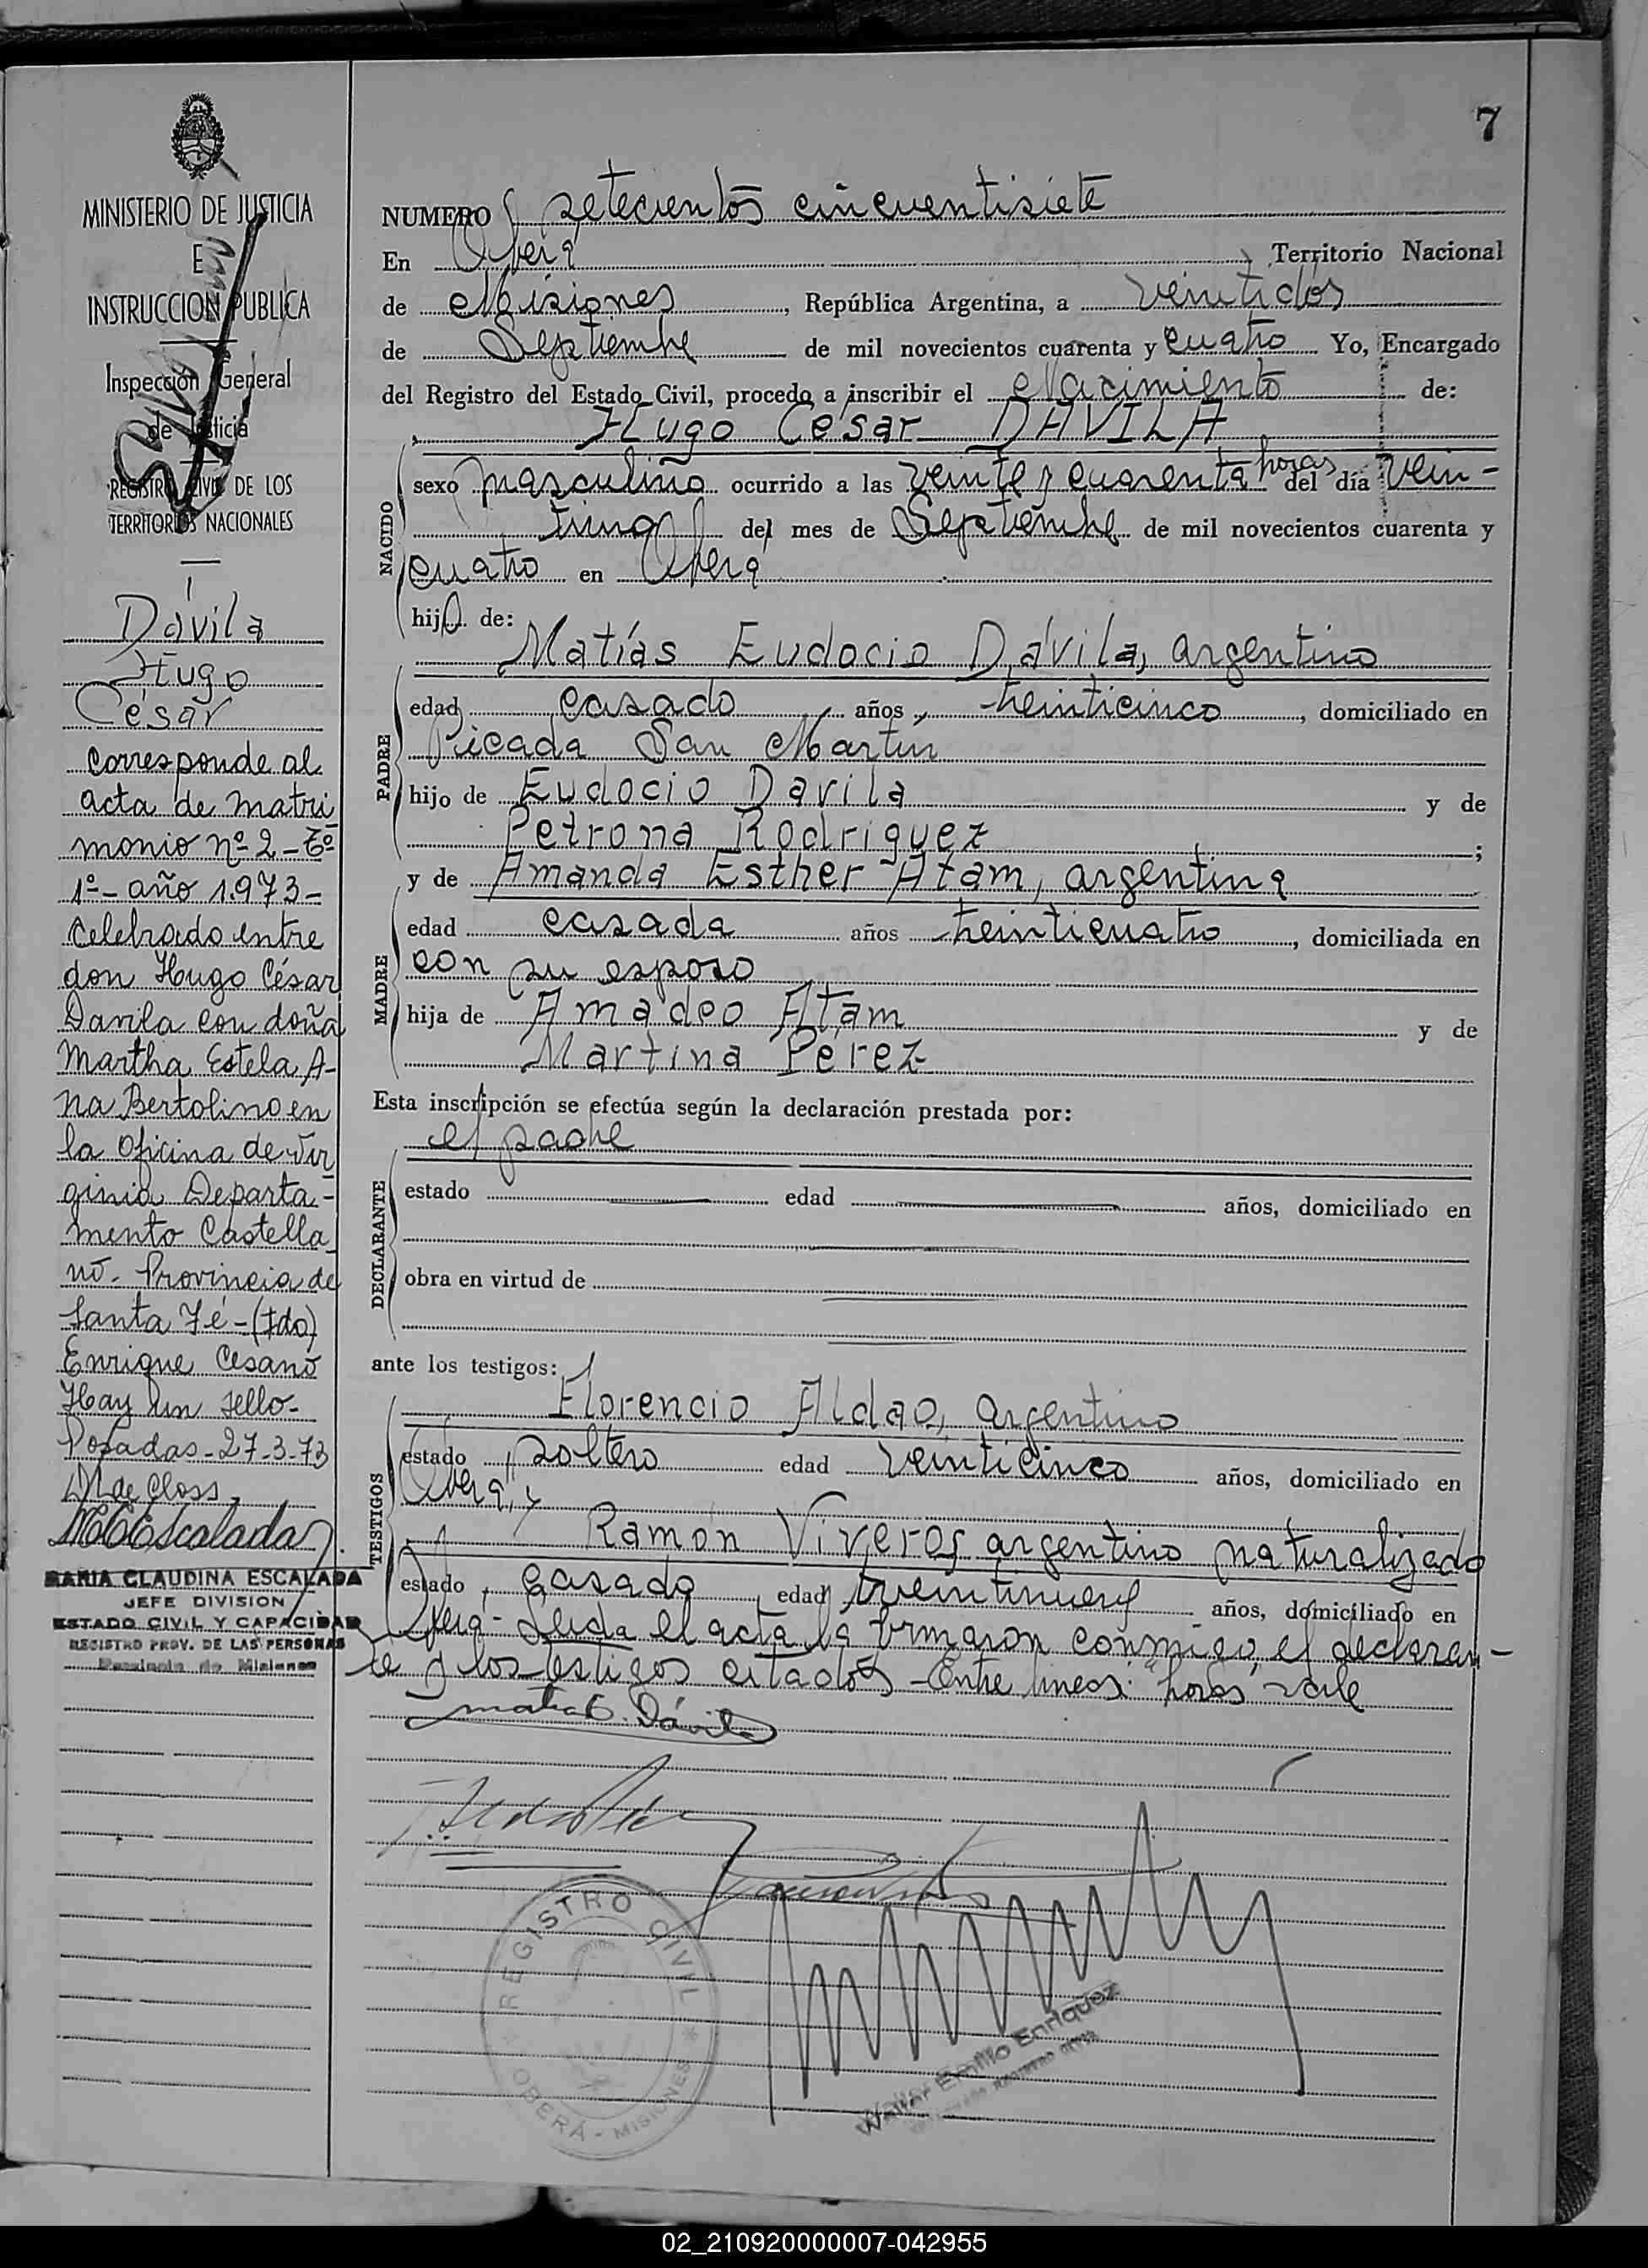 7
MINISTERIO DE JUSTICIA
E
INSTRUCCION PUBLICA
Inspección General
de Justicia
REGISTRO CIVIL DE LOS
TERRITORIOS NACIONALES
Dávila
Hugo
César
Corresponde al
acta de matri
monio nº 2 - Tº
1º - año 1.973 -
Celebrado entre
don Hugo César
Davila con doña
Martha Estela A-
na Bertolino en
la Oficina de Vir
ginia Departa-
mento Castella
nó. Provincia de
Santa Fé - (Fdo)
Enrique Cesano
Hay un sello -
Posadas - 27-3-73
de Closs
MCEscalada
MARIA CLAUDINA ESCALADA
JEFE DIVISION
ESTADO CIVIL Y CAPACIDAD
REGISTRO PROV. DE LAS PERSONAS
Provincia de Misiones
NUMERO setecientos cincuentisiete
En Oberá, Territorio Nacional
de Misiones, República Argentina, a veintidós
de Septiembre de mil novecientos cuarenta y cuatro Yo, Encargado
del Registro del Estado Civil, procedo a inscribir el Nacimiento de:
Hugo César DAVILA
NACIDO
sexo masculino ocurrido a las veinte y cuarenta horas del día vein-
tiuno del mes de Septiembre de mil novecientos cuarenta y
cuatro en Oberá
hijo de:
Matías Eudocio Dávila, argentino
PADRE
edad casado años, treinticinco, domiciliado en
Picada San Martín
hijo de Eudocio Davila y de
Petrona Rodriguez;
y de Amanda Esther Atam, argentina
MADRE
edad casada años treinticuatro, domiciliada en
con su esposo
hija de Amadeo Atam y de
Martina Pérez
Esta inscripción se efectúa según la declaración prestada por:
el padre
DECLARANTE
estado edad años, domiciliado en
obra en virtud de
ante los testigos:
Florencio Aldao, argentino
TESTIGOS
estado soltero edad veinticinco años, domiciliado en
Oberá, y
Ramón Viveros argentino naturalizado
estado casado edad treintinueve años, domiciliado en
Oberá - Leida el acta la firmaron conmigo, el declaran-
te y los testigos citados - Entre lineas: "horas" vale
Matías E. Dávila
REGISTRO CIVIL
OBERÁ - MISIONES
Walter Emilio Enriquez
02_210920000007-042955